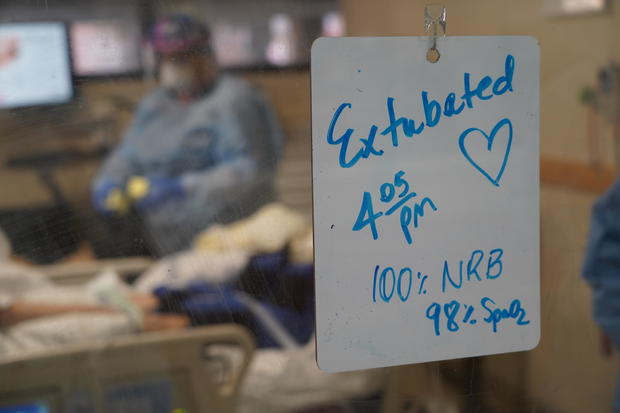 Extubated
4 05 pm
100% NRB
98% SpO2